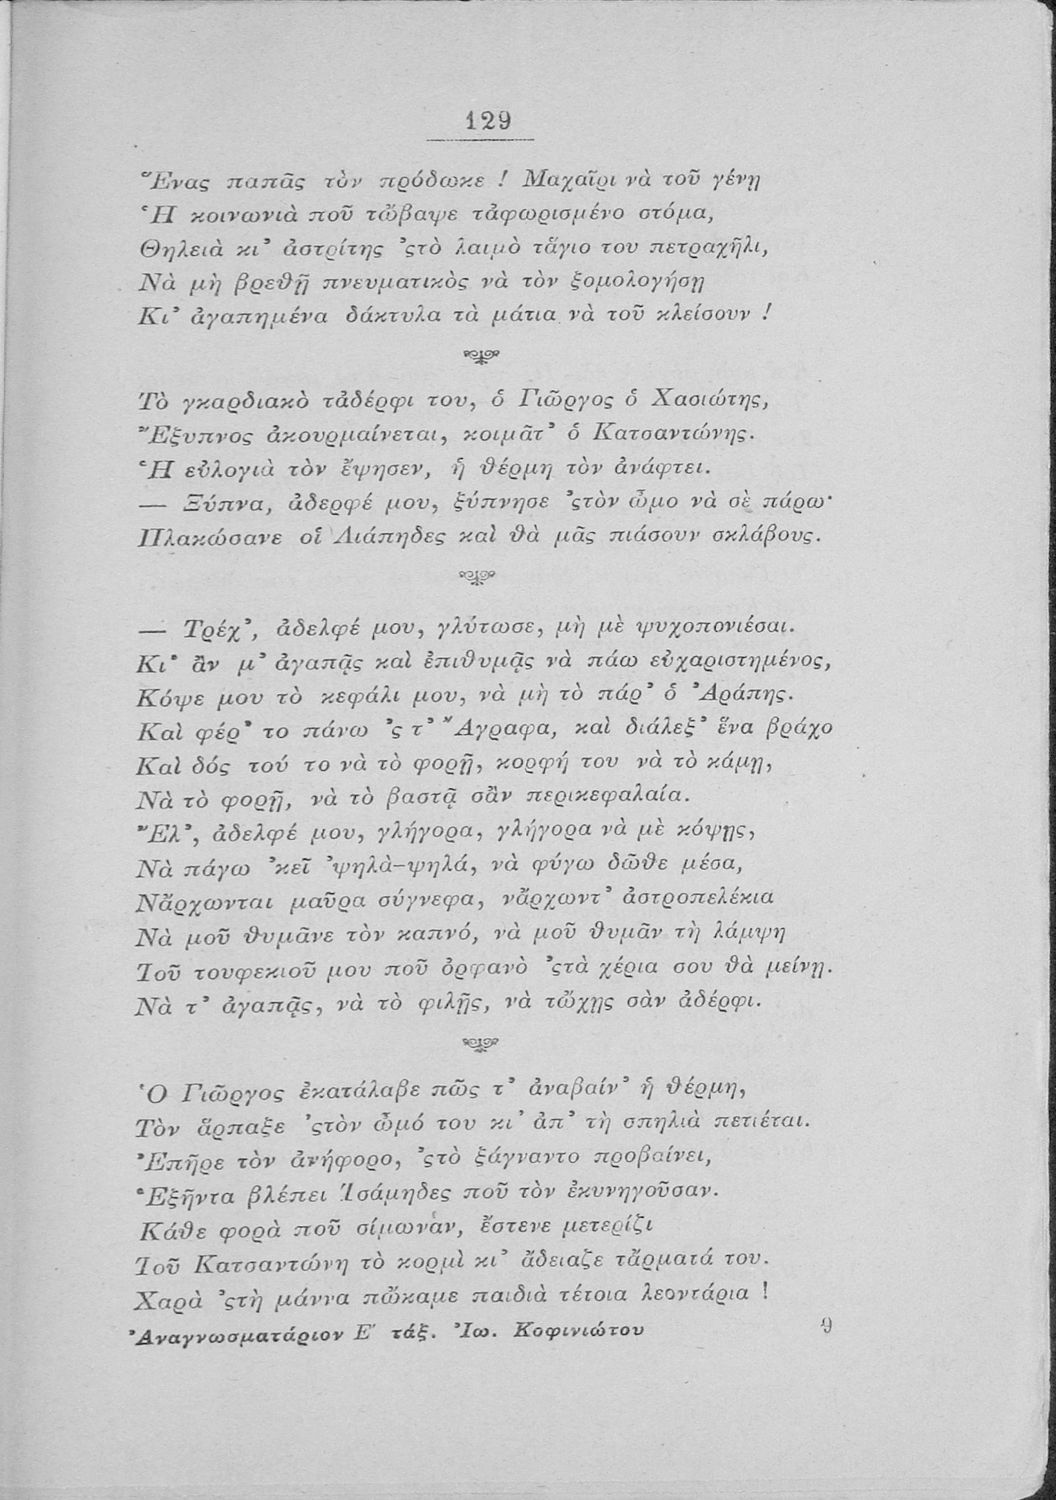 129
Ἕνας παπᾶς τὸν πρόδωκε ! Μαχαῖρι νὰ τοῦ γένῃ
Ἡ κοινωνιὰ ποῦ τὤβαψε τἀφωρισμένο στόμα,
Θηλειὰ κι' ἀστρίτης 'ςτὸ λαιμὸ τἅγιο του πετραχῆλι,
Νὰ μὴ βρεθῇ πνευματικὸς νὰ τὸν ξομολογήσῃ
Κι' ἀγαπημένα δάκτυλα τὰ μάτια νὰ τοῦ κλείσουν !
Τὸ γκαρδιακὸ τἀδέρφι του, ὁ Γιῶργος ὁ Χασιώτης,
Ἔξυπνος ἀκουρμαίνεται, κοιμᾶτ' ὁ Κατσαντώνης.
Ἡ εὐλογιὰ τὸν ἔψησεν, ἡ θέρμη τὸν ἀνάφτει.
— Ξύπνα, ἀδερφέ μου, ξύπνησε 'ςτὸν ὦμο νὰ σὲ πάρω·
Πλακώσανε οἱ Λιάπηδες καὶ θὰ μᾶς πιάσουν σκλάβους.
— Τρέχ', ἀδελφέ μου, γλύτωσε, μὴ μὲ ψυχοπονιέσαι.
Κι' ἂν μ' ἀγαπᾷς καὶ ἐπιθυμᾷς νὰ πάω εὐχαριστημένος,
Κόψε μου τὸ κεφάλι μου, νὰ μὴ τὸ πάρ' ὁ Ἀράπης.
Καὶ φέρ' το πάνω 'ς τ' Ἄγραφα, καὶ διάλεξ' ἕνα βράχο
Καὶ δός τού το νὰ τὸ φορῇ, κορφή του νὰ τὸ κάμῃ,
Νὰ τὸ φορῇ, νὰ τὸ βαστᾷ σἂν περικεφαλαία.
Ἔλ', ἀδελφέ μου, γλήγορα, γλήγορα νὰ μὲ κόψῃς,
Νὰ πάγω 'κεῖ 'ψηλὰ-ψηλά, νὰ φύγω δῶθε μέσα,
Νἄρχωνται μαῦρα σύγνεφα, νἄρχωντ' ἀστροπελέκια
Νὰ μοῦ θυμᾶνε τὸν καπνό, νὰ μοῦ θυμᾶν τὴ λάμψη
Τοῦ τουφεκιοῦ μου ποῦ ὀρφανὸ 'ςτὰ χέρια σου θὰ μείνῃ.
Νὰ τ' ἀγαπᾷς, νὰ τὸ φιλῇς, νὰ τὤχῃς σὰν ἀδέρφι.
Ὁ Γιῶργος ἐκατάλαβε πῶς τ' ἀναβαίν' ἡ θέρμη,
Τὸν ἅρπαξε 'ςτὸν ὦμό του κι' ἀπ' τὴ σπηλιὰ πετιέται.
Ἐπῆρε τὸν ἀνήφορο, 'ςτὸ ξάγναντο προβαίνει,
Ἑξῆντα βλέπει Τσάμηδες ποῦ τὸν ἐκυνηγοῦσαν.
Κάθε φορὰ ποῦ σίμωναν, ἔστενε μετερίζι
Τοῦ Κατσαντώνη τὸ κορμὶ κι' ἄδειαζε τἄρματά του.
Χαρὰ 'ςτὴ μάννα πὤκαμε παιδιὰ τέτοια λεοντάρια !
Ἀναγνωσματάριον Ε' τάξ. Ἰω. Κοφινιώτου 9